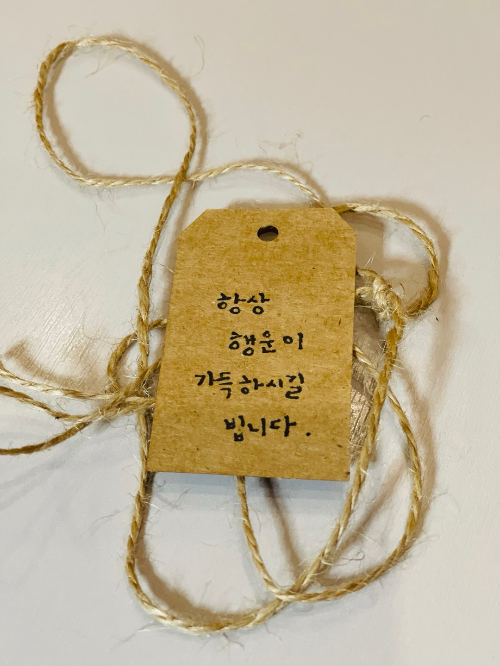 항상
행운이
가득하시길
빕니다.